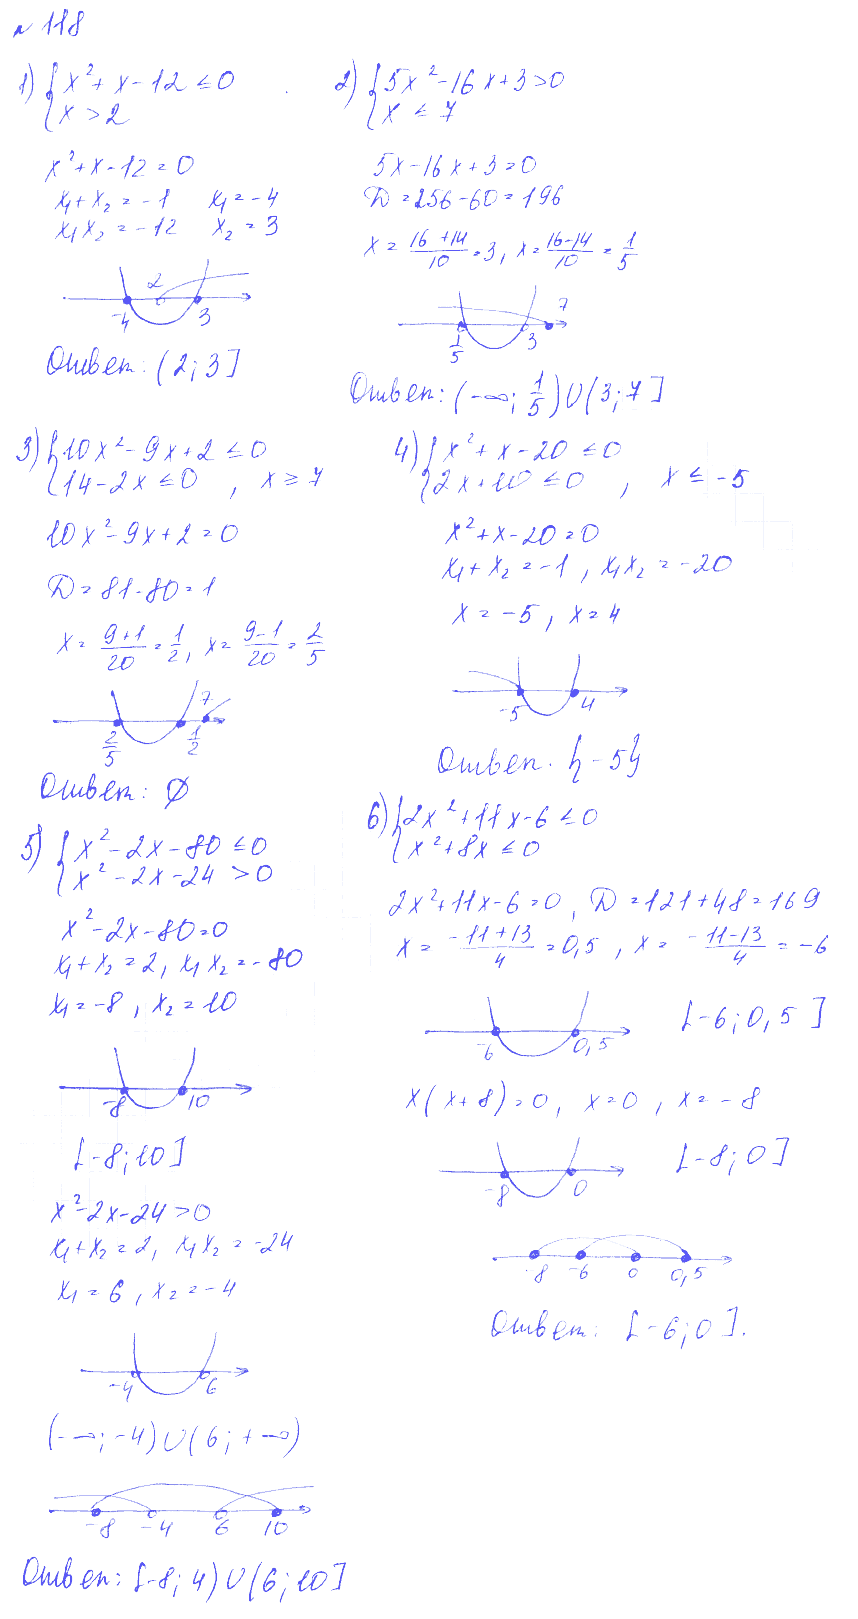 № 118
1) { x² + x - 12 ≤ 0
x > 2
x² + x - 12 = 0
x₁ + x₂ = -1   x₁ = -4
x₁x₂ = -12   x₂ = 3
2
-4   3
Ответ: (2; 3]
2) { 5x² - 16x + 3 > 0
x ≤ 7
5x - 16x + 3 = 0
D = 256 - 60 = 196
x = (16 + 14)/10 = 3, x = (16 - 14)/10 = 1/5
7
1/5   3
Ответ: (-∞; 1/5) ∪ (3; 7]
3) { 10x² - 9x + 2 ≤ 0
14 - 2x ≤ 0 , x ≥ 7
10x² - 9x + 2 = 0
D = 81 - 80 = 1
x = (9 + 1)/20 = 1/2, x = (9 - 1)/20 = 2/5
7
2/5   1/2
Ответ: ∅
4) { x² + x - 20 ≤ 0
2x + 10 ≤ 0 , x ≤ -5
x² + x - 20 = 0
x₁ + x₂ = -1 , x₁x₂ = -20
x = -5 , x = 4
-5   4
Ответ. {-5}
5) { x² - 2x - 80 ≤ 0
x² - 2x - 24 > 0
x² - 2x - 80 = 0
x₁ + x₂ = 2, x₁x₂ = -80
x₁ = -8 , x₂ = 10
-8   10
[-8; 10]
x² - 2x - 24 > 0
x₁ + x₂ = 2, x₁x₂ = -24
x₁ = 6 , x₂ = -4
-4   6
(-∞; -4) ∪ (6; +∞)
-8   -4   6   10
Ответ: [-8; 4) ∪ (6; 10]
6) { 2x² + 11x - 6 ≤ 0
x² + 8x ≤ 0
2x² + 11x - 6 = 0, D = 121 + 48 = 169
x = (-11 + 13)/4 = 0,5 , x = (-11 - 13)/4 = -6
[-6; 0,5]
-6   0,5
x(x + 8) = 0, x = 0 , x = -8
[-8; 0]
-8   0
-8   -6   0   0,5
Ответ: [-6; 0].